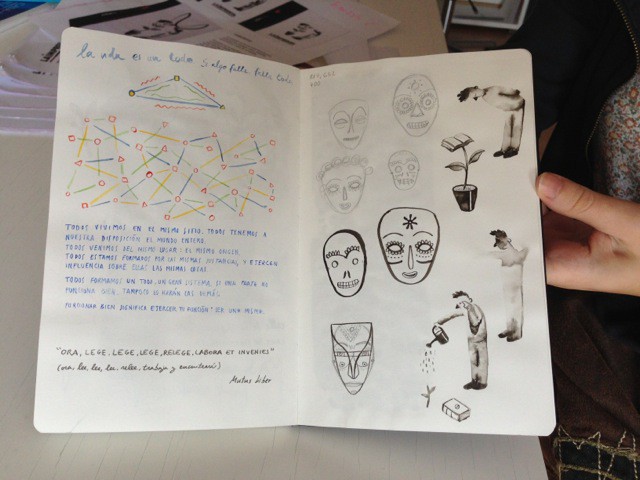 la vida es un todo. Si algo falla, falla todo
TODOS VIVIMOS EN EL MISMO SITIO. TODOS TENEMOS A
NUESTRA DISPOSICIÓN EL MUNDO ENTERO.
TODOS VENIMOS DEL MISMO LUGAR: EL MISMO ORIGEN.
TODOS ESTAMOS FORMADOS POR LAS MISMAS SUSTANCIAS, Y EJERCEN
INFLUENCIA SOBRE ELLAS LAS MISMAS
TODOS FORMAMOS UN TODO, UN GRAN SISTEMA, SI UNA PARTE NO
FUNCIONA BIEN, TAMPOCO LO HARÁN LAS DEMÁS.
FUNCIONAR BIEN SIGNIFICA EJERCER TU FUNCIÓN: SER UNO MISMO.
"ORA, LEGE, LEGE, LEGE, RELEGE, LABORA ET INVENIES"
(ora, lee, lee, lee, relee, trabaja y encontrarás)
Mutus Liber